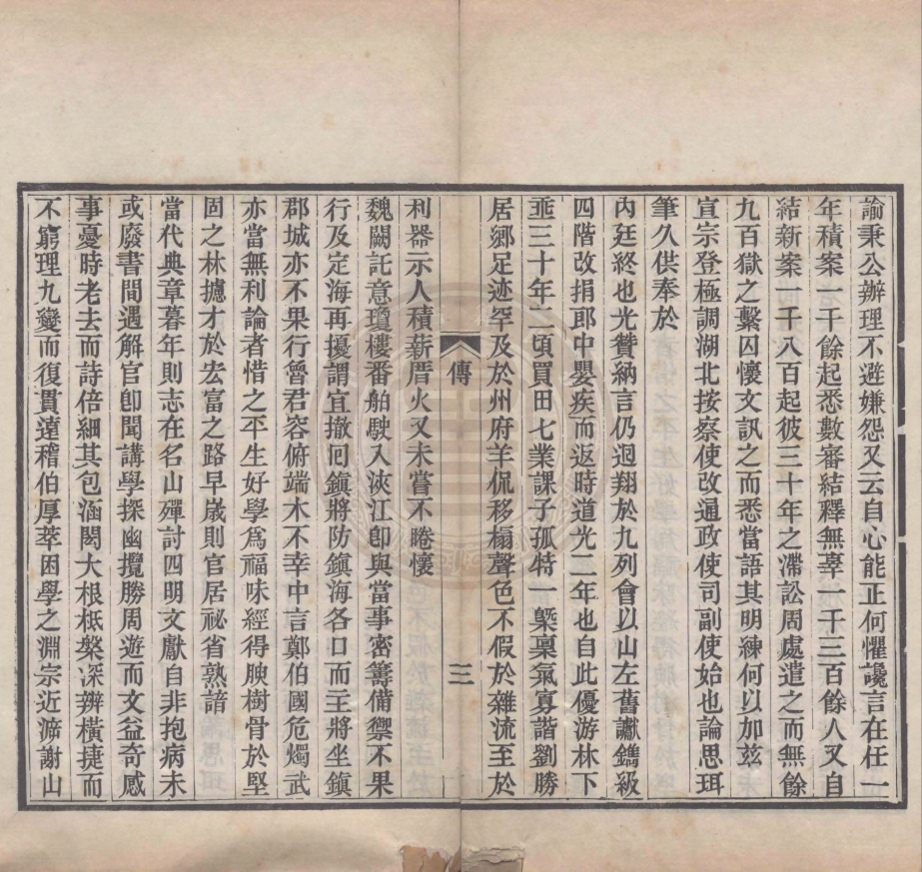 諭秉公辦理不避嫌怨又云自心能正何懼讒言在任一
年積案一千餘起悉數審結釋無辜一千三百餘人又自
結新案一千八百起彼三十年之滯訟周處遣之而無餘
九百獄之繫囚懷文訊之而悉當語其明練何以加茲
宣宗登極調湖北按察使改通政使司副使始也論思珥
筆久供奉於
內廷終也光贊納言仍迴翔於九列會以山左舊讞鐫級
四階改捐郎中嬰疾而返時道光二年也自此優游林下
垂三十年二頃買田七業課子孤特一槩稟氣寡諧劉勝
居鄉足迹罕及於州府羊侃移榻聲色不假於雜流至於
傳
三
利器示人積薪厝火又未嘗不睠懷
魏闕託意瓊樓番舶駛入浹江卽與當事密籌備禦不果
行及定海再擾謂宜撤囘鎭將防鎭海各口而主將坐鎭
郡城亦不果行曾君容俯端木不幸中言鄭伯國危燭武
亦當無利論者惜之平生好學爲福味經得腴樹骨於堅
固之林攄才於宏富之路早歲則官居祕省熟諳
當代典章暮年則志在名山殫討四明文獻自非抱病未
或廢書間遇解官卽聞講學探幽攬勝周遊而文益奇感
事憂時老去而詩倍細其包涵閎大根柢槃深辨橫捷而
不窮理九變而復貫遠稽伯厚萃困學之淵宗近溯謝山